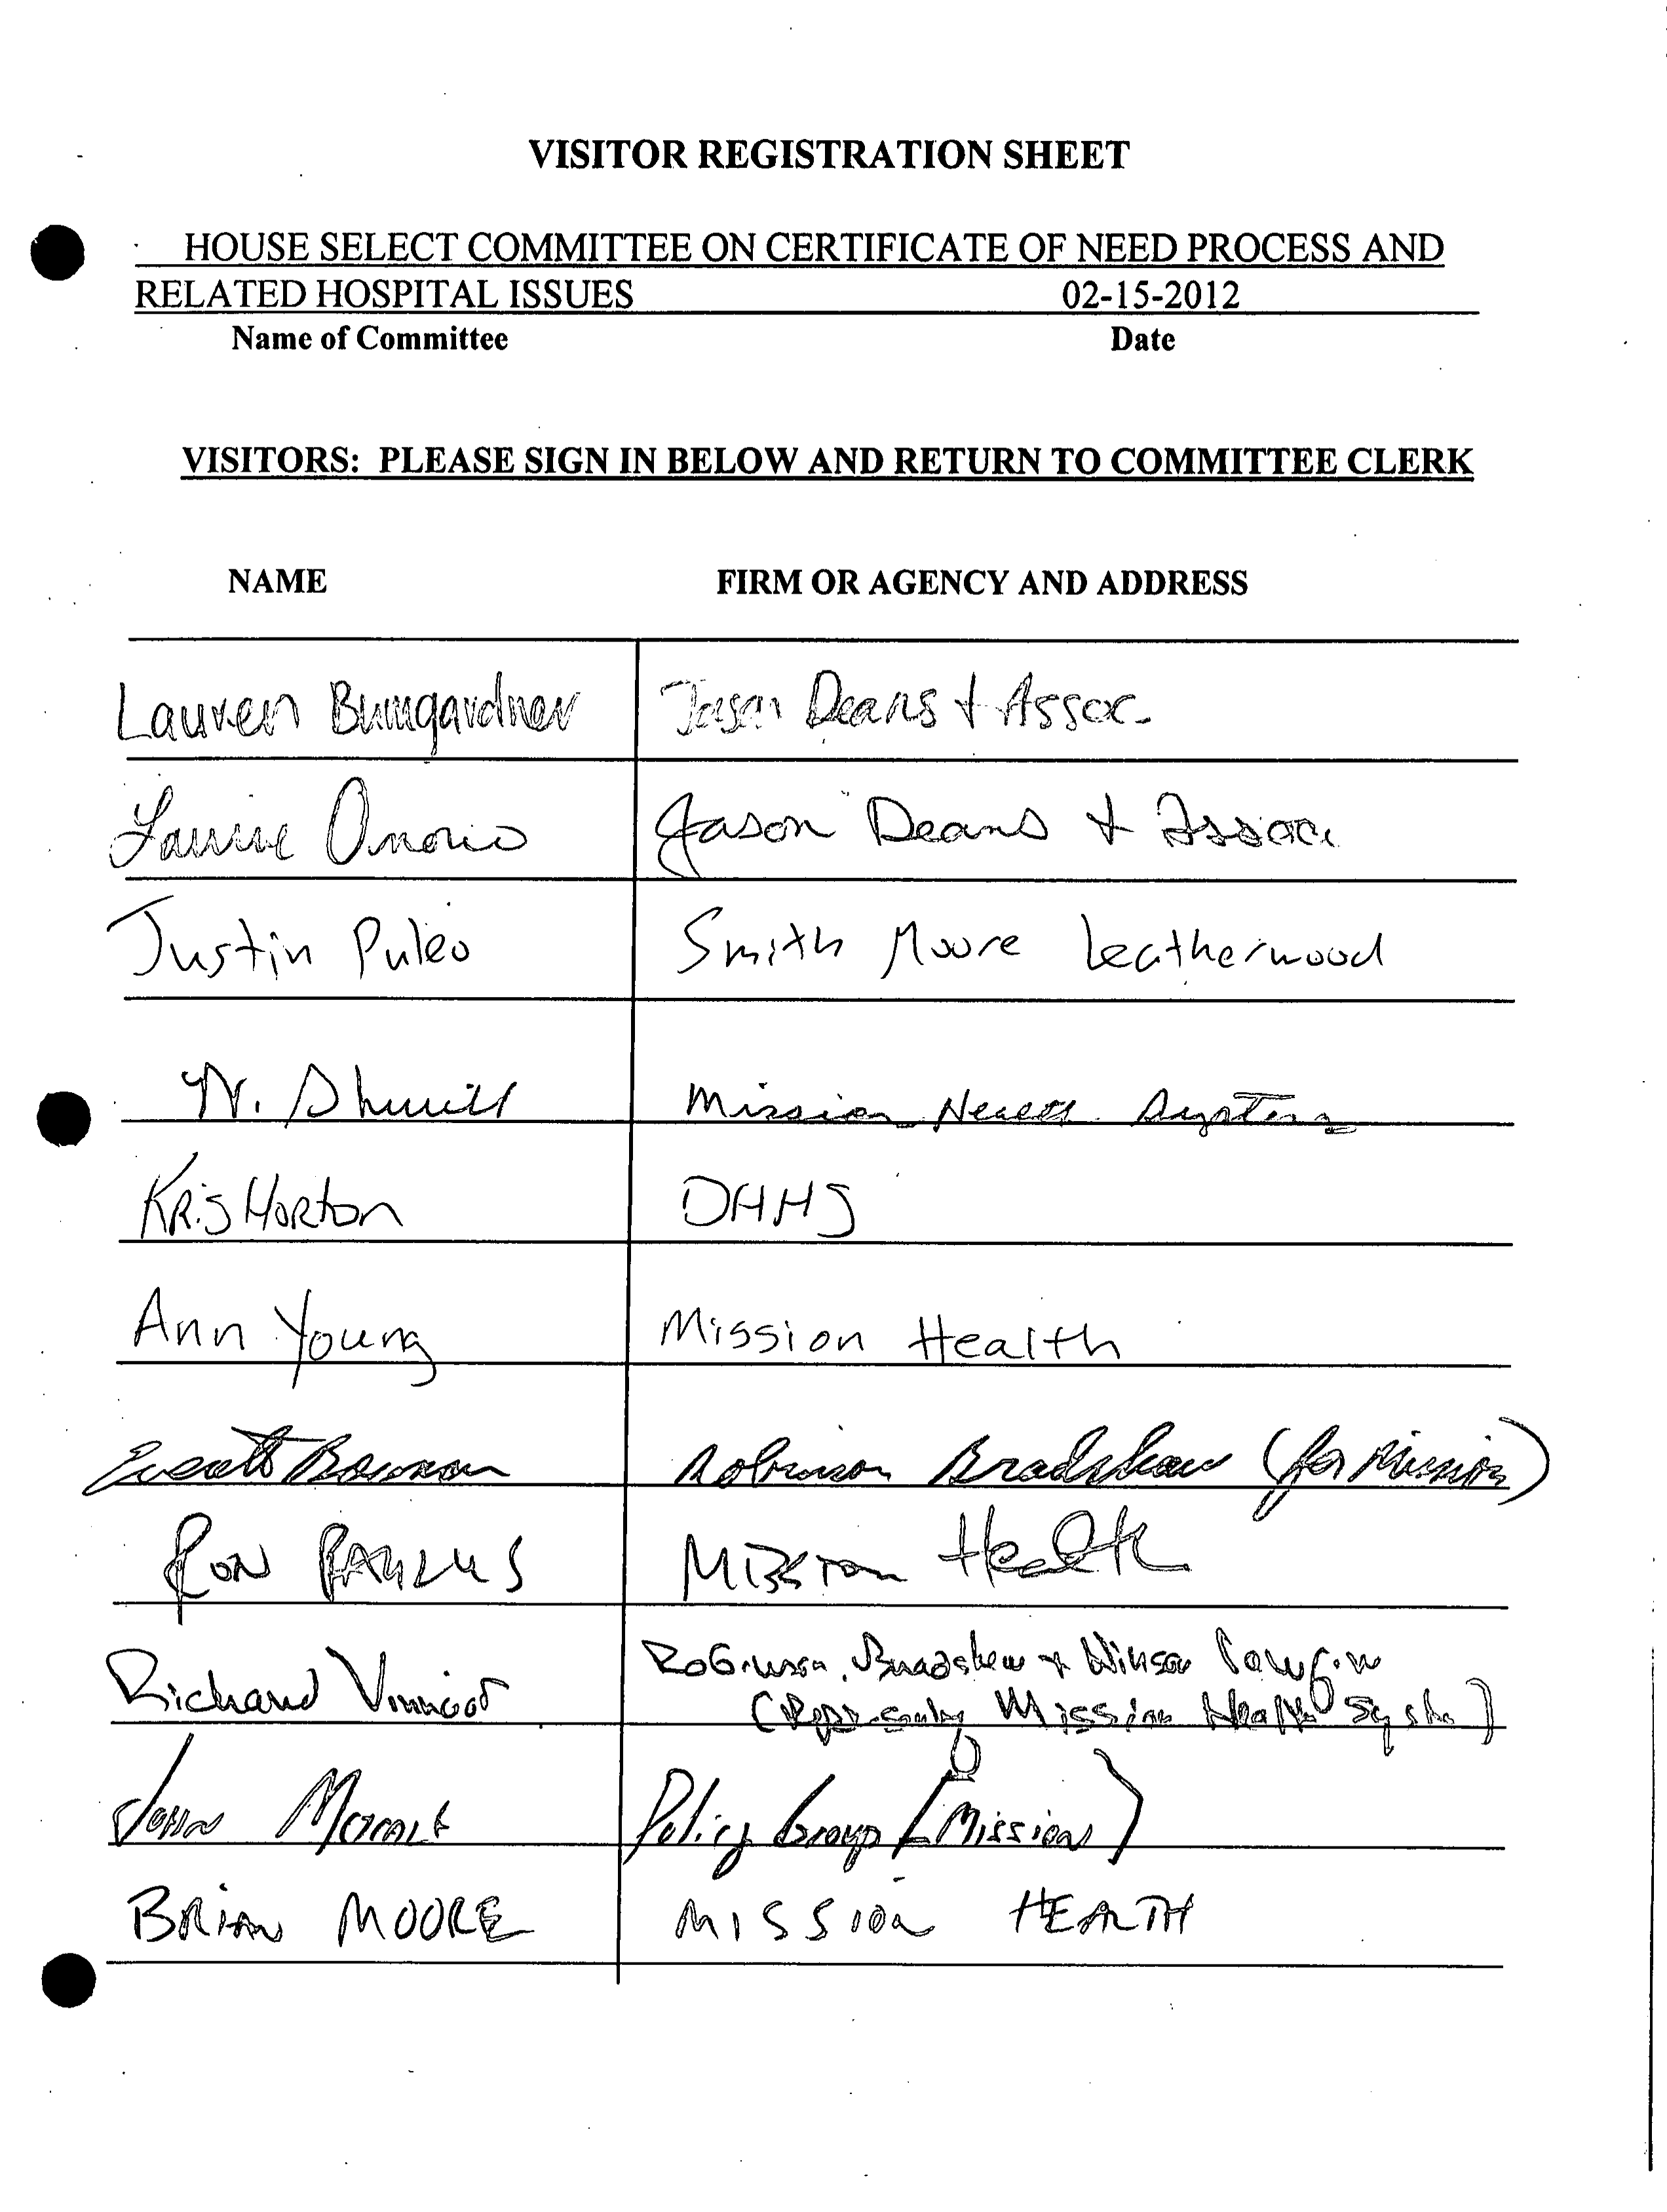 VISITOR REGISTRATION SHEET
HOUSE SELECT COMMITTEE ON CERTIFICATE OF NEED PROCESS AND
RELATED HOSPITAL ISSUES 02-15-2012
Name of Committee Date
VISITORS: PLEASE SIGN IN BELOW AND RETURN TO COMMITTEE CLERK
NAME FIRM OR AGENCY AND ADDRESS
Lauren Bumgardner Jason Deans + Assoc.
Laurie Onorio Jason Deans + Assoc.
Justin Puleo Smith Moore Leatherwood
Mission Health System
KRIS HORTON DHHS
Ann Young Mission Health
Everett Bowman Robinson Bradshaw (for Mission)
RON PAULUS Mission Health
Robinson, Bradshaw + Hinson
Richard (Representing Mission Health System)
JOHN Policy Group (Mission)
BRIAN MOORE MISSION HEALTH